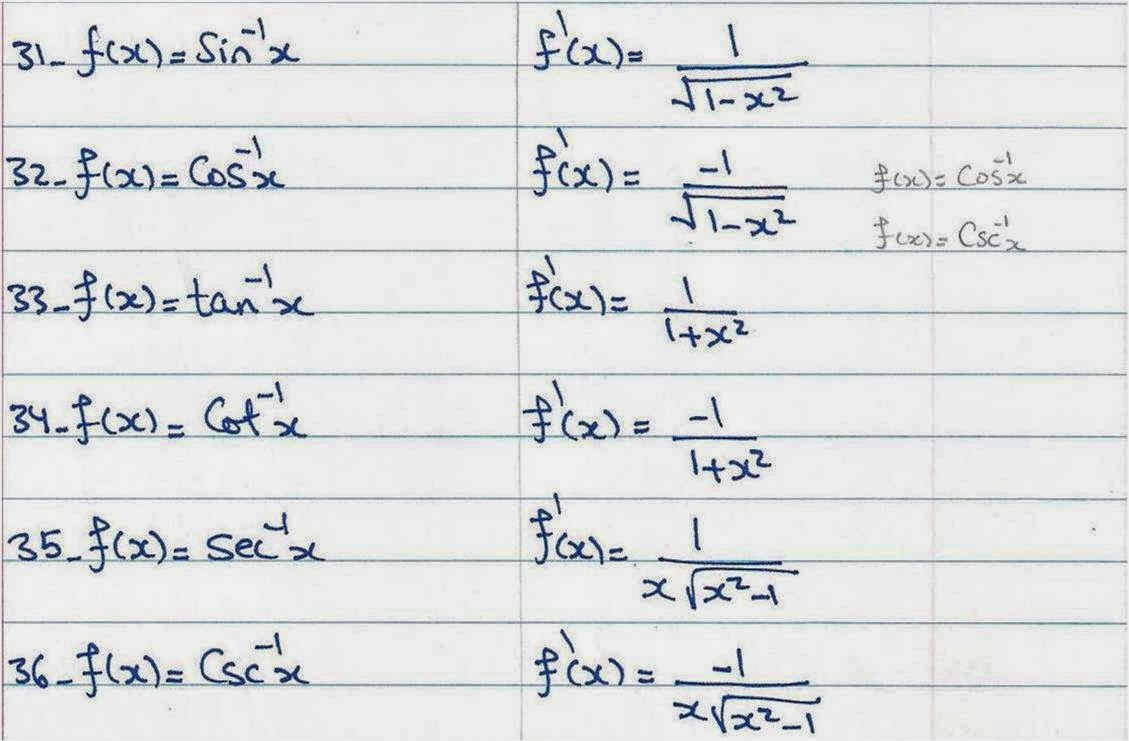 31- f(x) = Sin⁻¹x f'(x) = 1/√(1-x²)
32- f(x) = Cos⁻¹x f'(x) = -1/√(1-x²) f(x) = Cos⁻¹x
f(x) = Csc⁻¹x
33- f(x) = tan⁻¹x f'(x) = 1/(1+x²)
34- f(x) = Cot⁻¹x f'(x) = -1/(1+x²)
35- f(x) = sec⁻¹x f'(x) = 1/(x√(x²-1))
36- f(x) = Csc⁻¹x f'(x) = -1/(x√(x²-1))